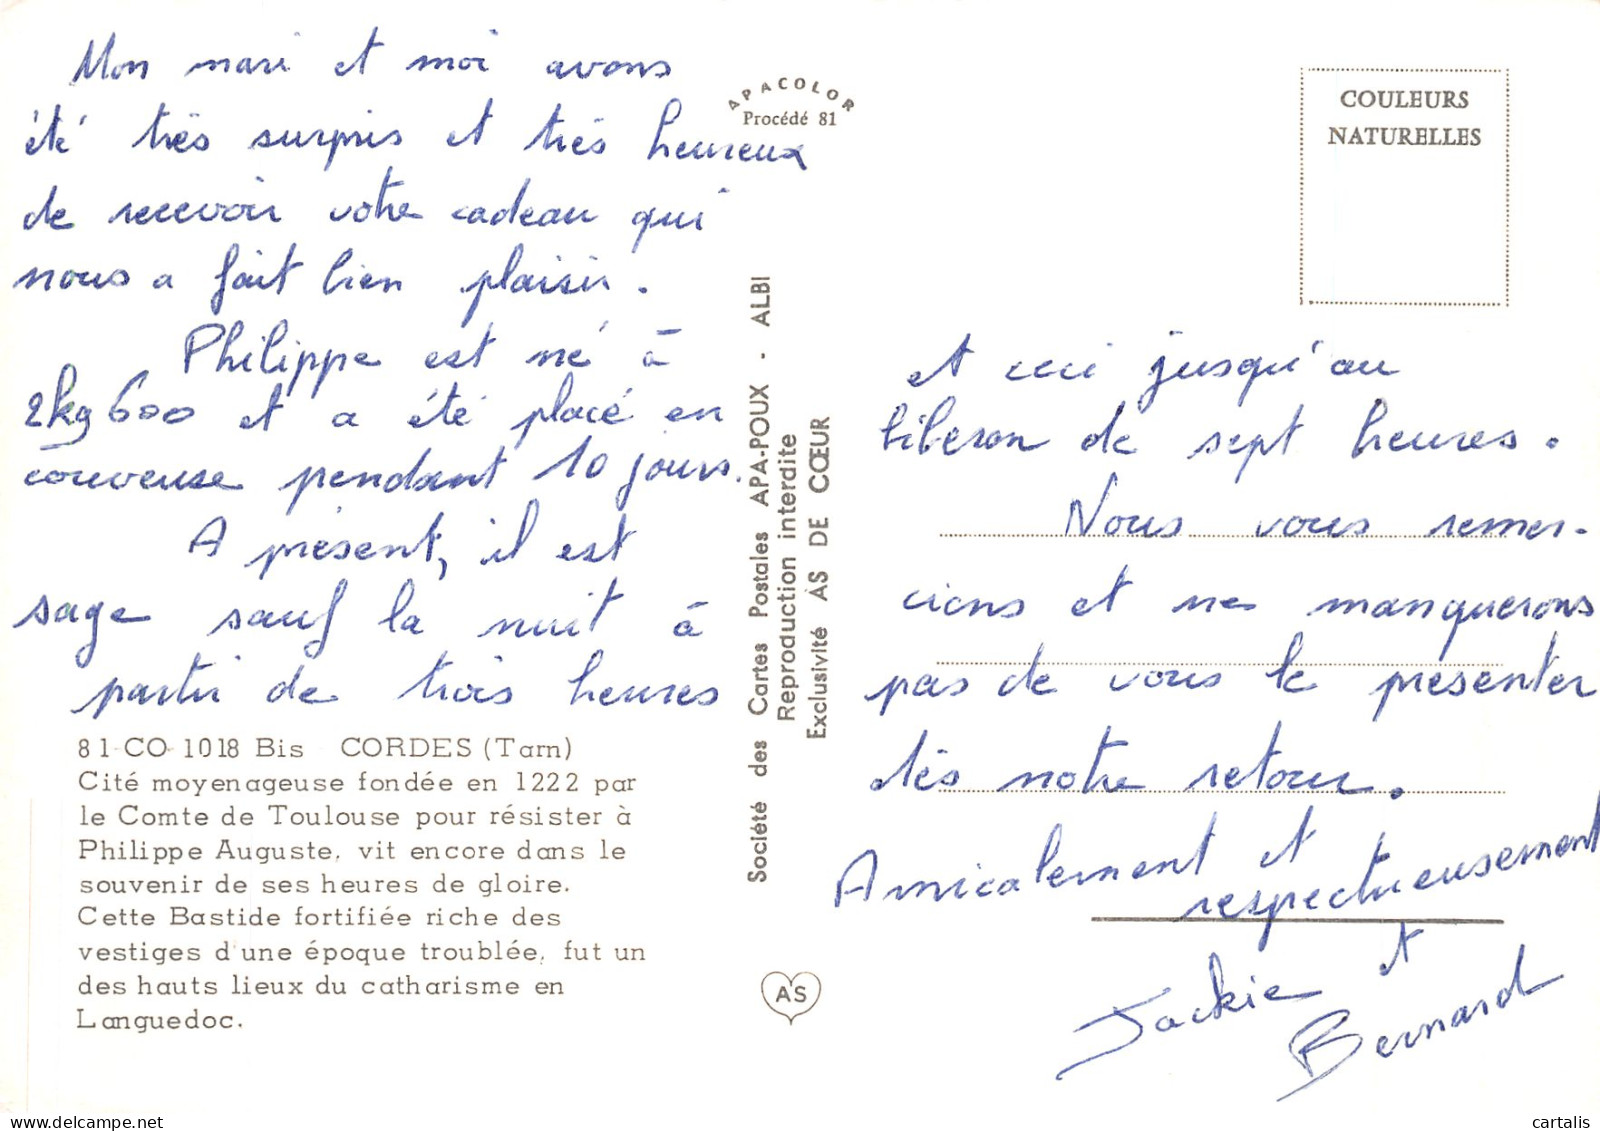 Mon mari et moi avons
été très surpris et très heureux
de recevoir votre cadeau qui
nous a fait bien plaisir.
Philippe est né à
2kg600 et a été placé en
couveuse pendant 10 jours.
A présent, il est
sage sauf la nuit à
partir de trois heures
81-CO-1018 Bis CORDES (Tarn)
Cité moyenageuse fondée en 1222 par
le Comte de Toulouse pour résister à
Philippe Auguste, vit encore dans le
souvenir de ses heures de gloire.
Cette Bastide fortifiée riche des
vestiges d'une époque troublée, fut un
des hauts lieux du catharisme en
Languedoc.
APACOLOR
Procédé 81
Société des Cartes Postales APA-POUX - ALBI
Reproduction interdite
Exclusivité AS DE CŒUR
AS
COULEURS
NATURELLES
et ceci jusqu'au
biberon de sept heures.
Nous vous remer-
cions et ne manquerons
pas de vous le présenter
dès notre retour.
Amicalement et
respectueusement
Jackie et
Bernard
cartalis